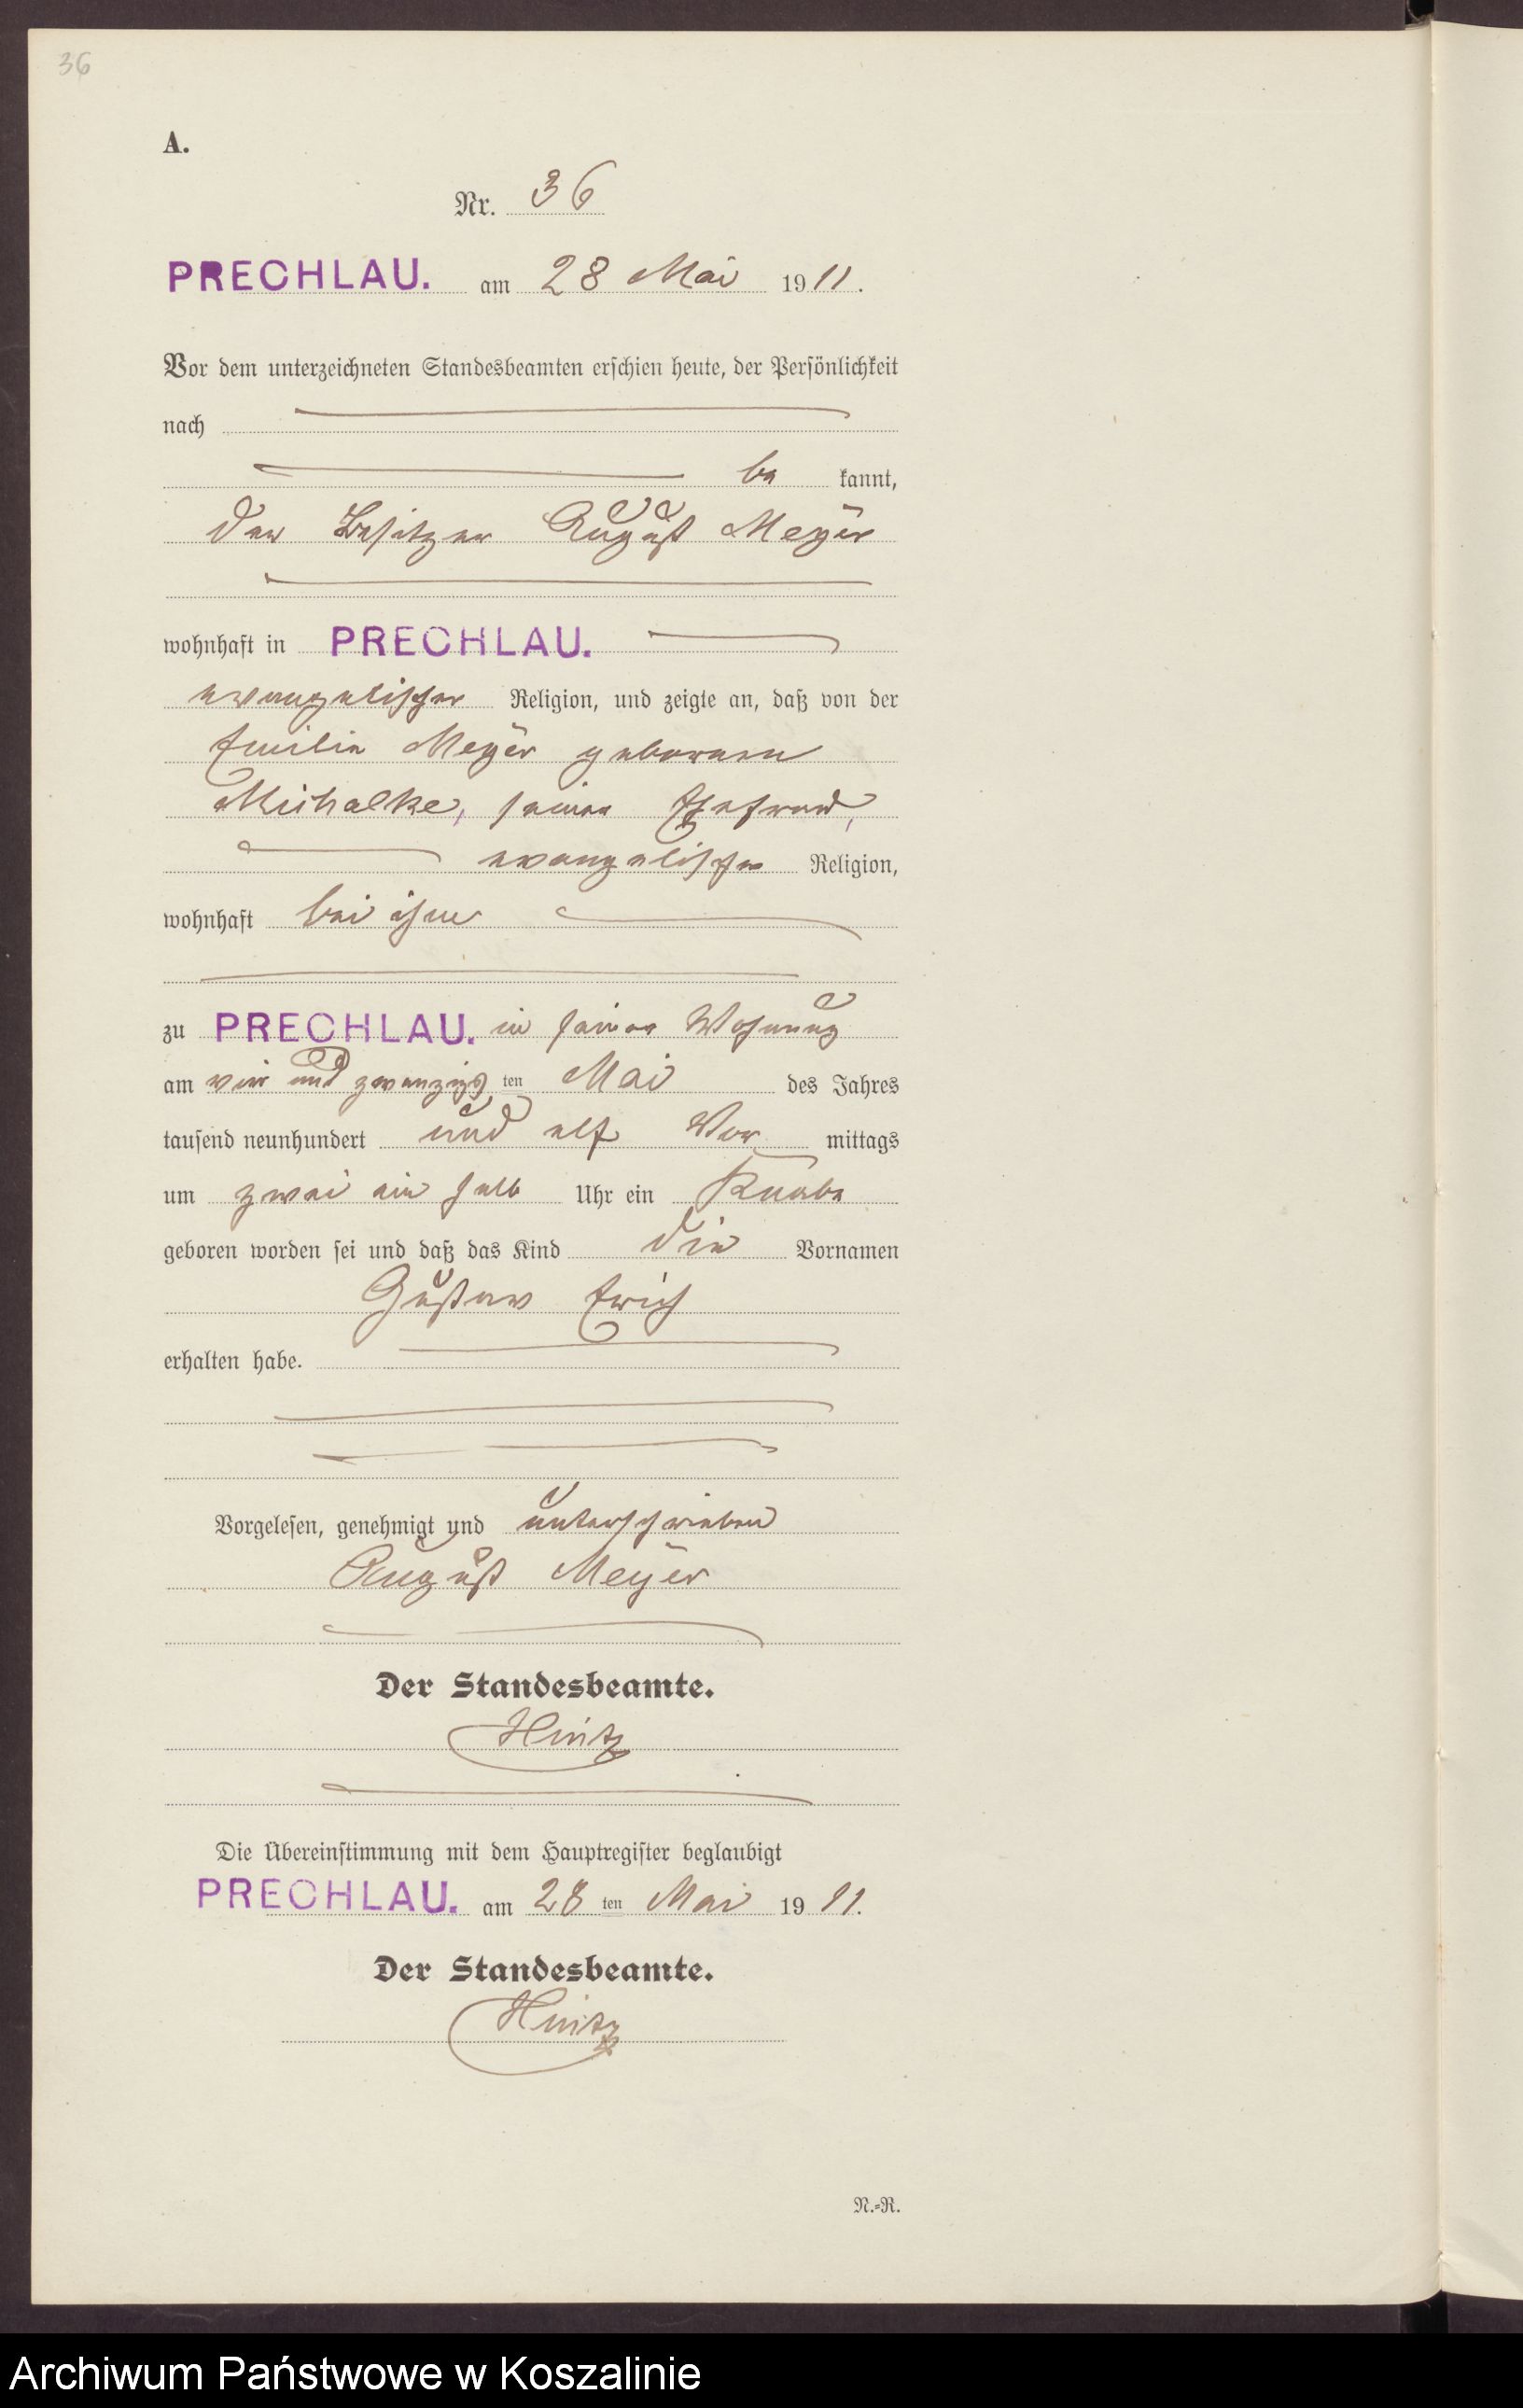 36
A.
Nr. 36
PRECHLAU. am 28 Mai 1911.
Vor dem unterzeichneten Standesbeamten erschien heute, der Persönlichkeit
nach
be kannt,
der Besitzer August Meyer
wohnhaft in PRECHLAU.
evangelischer Religion, und zeigte an, daß von der
Emilie Meyer geborenen
Michalke, seiner Ehefrau,
evangelischer Religion,
wohnhaft bei ihm
zu PRECHLAU. in seiner Wohnung
am vier und zwanzigsten Mai des Jahres
tausend neunhundert und elf Vor mittags
um zwei ein halb Uhr ein Knabe
geboren worden sei und daß das Kind die Vornamen
Gustav Erich
erhalten habe.
Vorgelesen, genehmigt und unterschrieben
August Meyer
Der Standesbeamte.
Hintz
Die Übereinstimmung mit dem Hauptregister beglaubigt
PRECHLAU. am 28 ten Mai 1911.
Der Standesbeamte.
Hintz
N.=R.
Archiwum Państwowe w Koszalinie